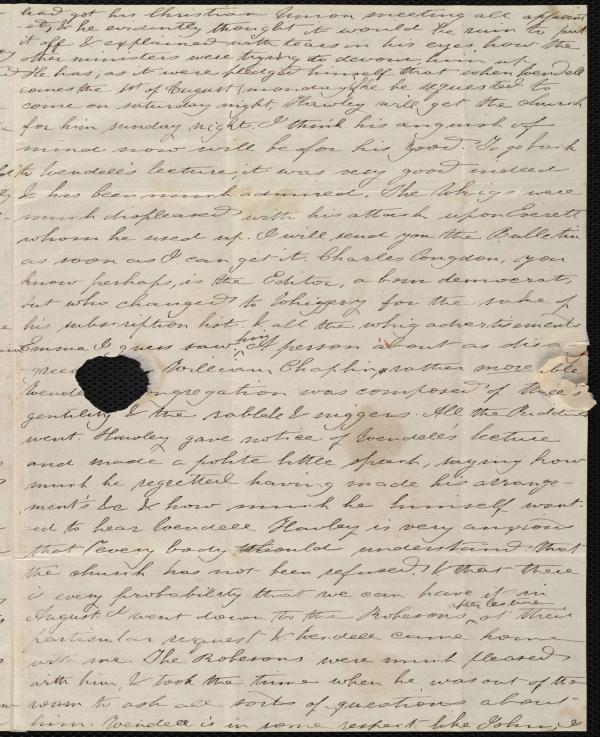 had got his Christian Union meeting all appoint
ed, & he evidently thought it would be ruin to put
it off & explained with tears in his eyes, how the
other ministers were trying to devour him up.
He has, as it were pledged himself that when Wendell
comes the 1st of August (monday) & he be requested to
come on saturday night, Hawley will get the church
for him sunday night. I think his anguish of
mind now will be for his good. To go back
to Wendell's lecture, it was very good indeed
& has been much admired. The Whigs were
much displeased with his attack upon Everett
whom he used up. I will send you the Bulletin
as soon as I can get it. Charles Congdon, you
know perhaps, is the Editor, a born democrat,
but who changed to Whiggery for the sake of
his subscription list & all the whig advertisements
Emma I guess saw him. A person about as disa
gree William Chaplin, rather more
Wendell ngregation was composed of the
gentility & the rabble & niggers. All the
went. Hawley gave notice of Wendell's lecture
and made a polite little speech, saying how
much he regretted having made his arrange-
ment's &c & how much he himself want-
ed to hear Wendell. Hawley is very anxious
that every body should understand that
the church has not been refused, & that there
is every probability that we can have it in
August. I went down to the Robesons after lecture at their
particular request & Wendell came home
with me. The Robesons were much pleased
with him, & took the time when he was out of the
room to ask all sorts of questions about
him. Wendell is in some respect like John, I